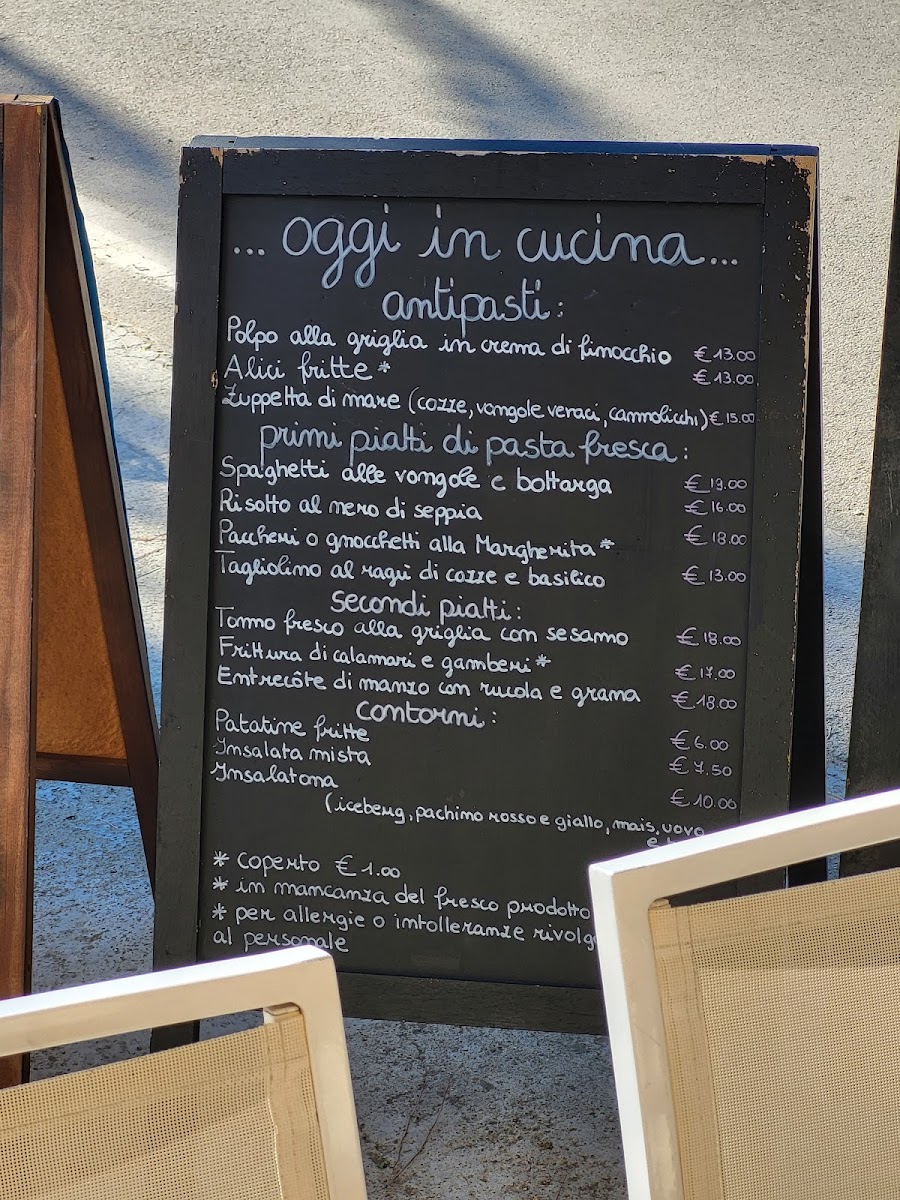 ... oggi in cucina...
antipasti:
Polpo alla griglia in crema di finocchio €13.00
Alici fritte* €13.00
Zuppetta di mare (cozze, vongole veraci, cannolicchi) €15.00
primi piatti di pasta fresca:
Spaghetti alle vongole e bottarga €19.00
Risotto al nero di seppia €16.00
Paccheri o gnocchetti alla Margherita* €18.00
Tagliolino al ragù di cozze e basilico €13.00
Secondi piatti:
Tonno fresco alla griglia con sesamo €18.00
Frittura di calamari e gamberi* €17.00
Entrecôte di manzo con rucola e grana €18.00
Contorni:
Patatine fritte €6.00
Insalata mista €7.50
Insalatona €10.00
(iceberg, pachino rosso e giallo, mais, uova
e
* coperto €1.00
* in mancanza del fresco prodotto
* per allergie o intolleranze
al personale